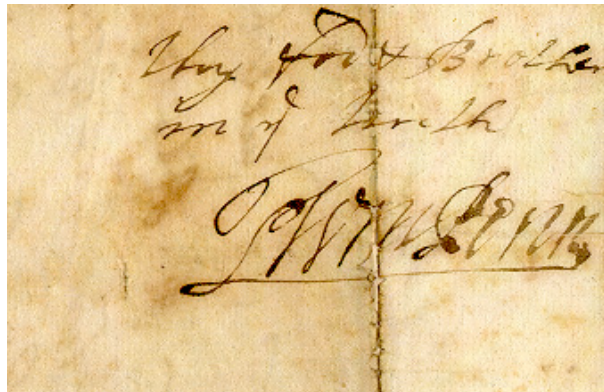 thy Frd & Brother
in ye truth
Wm Penn